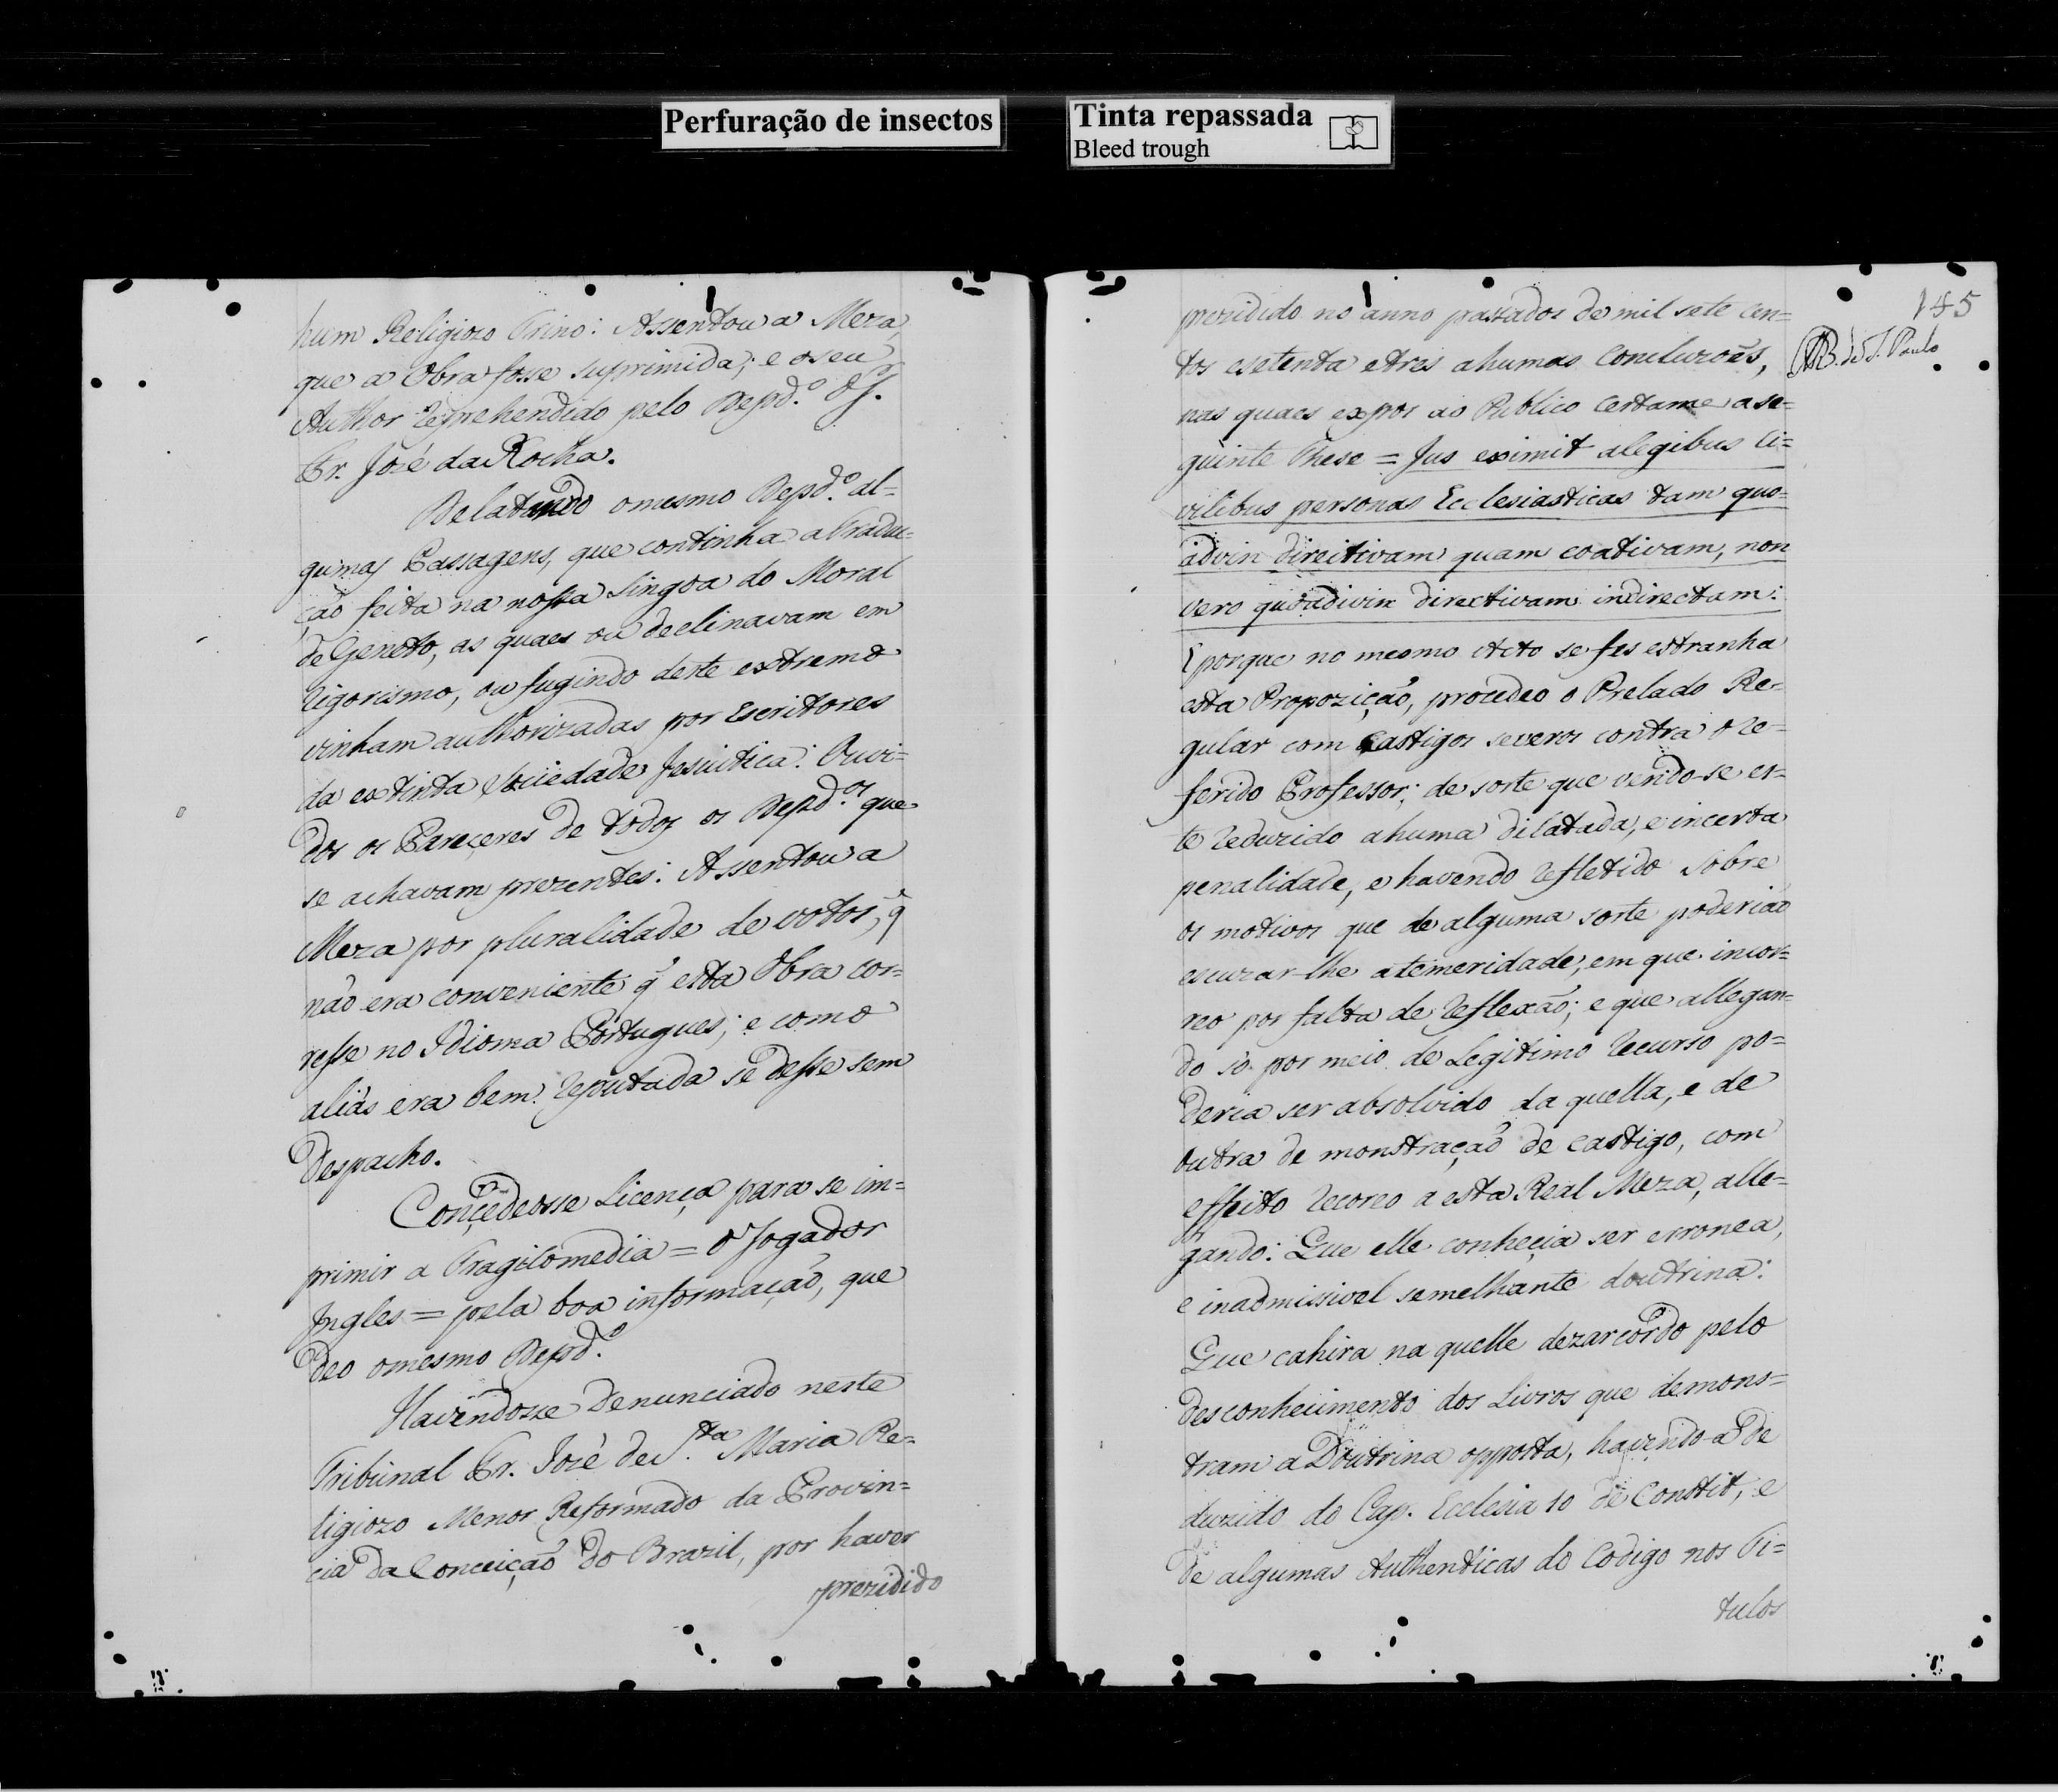 Perfuração de insectos
Tinta repassada
Bleed trough
hum Religiozo Trino: Assentou a Meza,
que a Obra fosse suprimida; e o seu
Author reprehendido pelo Depd.º
Fr. José da Rocha.
Relatando o mesmo Depd.º al=
gumas Passagens, que continha a Tradu-
ção feita na nossa Lingoa do Moral
de Geneto, as quaes ou declinavam em
rigorismo, ou fugindo deste extremo
vinham authorizadas por Escritores
da extinta Sociedade Jesuitica: Ouvi=
dos os Pareçeres de todos os Depd.os que
se achavam prezentes: Assentou a
Meza por pluralidade de votos, q̃
não era conveniente q̃ esta Obra cor=
resse no Idioma Portugues; e como
aliás era bem reputada se desse sem
Despacho.
Conçedeosse Licença para se im=
primir a Tragicomedia = O Jogador
Ingles = pela boa informação, que
deo o mesmo Depd.º
Havendosse denunciado neste
Tribunal Fr. José de S.ta Maria Re=
ligiozo Menor Reformado da Provin=
cia da Conceição do Brazil, por haver
prezidido
145
B. de S. Paulo
prezidido no anno passados de mil sete cen=
tos e setenta e tres a humas Concluzoẽs,
nas quaes expos ao Publico Certame a se=
guinte These = Jus eximit a legibus Ci=
vilibus personas Ecclesiasticas tam quo=
advin direitivam quam coativam, non
vero quoadivin directivam indirectam:
E porque no mesmo Acto se fes estranha
esta Propozição, procedeo o Prelado Re-
gular com Castigos severos contra o re-
ferido Professor; de sorte que vendo-se es-
te reduzido a huma dilatada, e incerta
penalidade, e havendo refletido sobre
os motivos que de alguma sorte poderião
escuzar-lhe a temeridade, em que incor=
reo por falta de reflexão; e que allegan=
do só por meio de Legitimo recurso po=
deria ser absolvido da quella, e de
outra de monstração de castigo, com
effeito recoreo a esta Real Meza, alle=
gando: Que elle conheçia ser erronea,
e inadmissivel semelhante doutrina:
Que cahira na quelle dezarcordo pelo
desconhecimento dos Livros que demons=
tram a Doutrina opposta, havendo-a de
duzido do Cap. Ecclesia 10 de Constit, e
de algumas Authenticas do Codigo nos Ti=
tulos